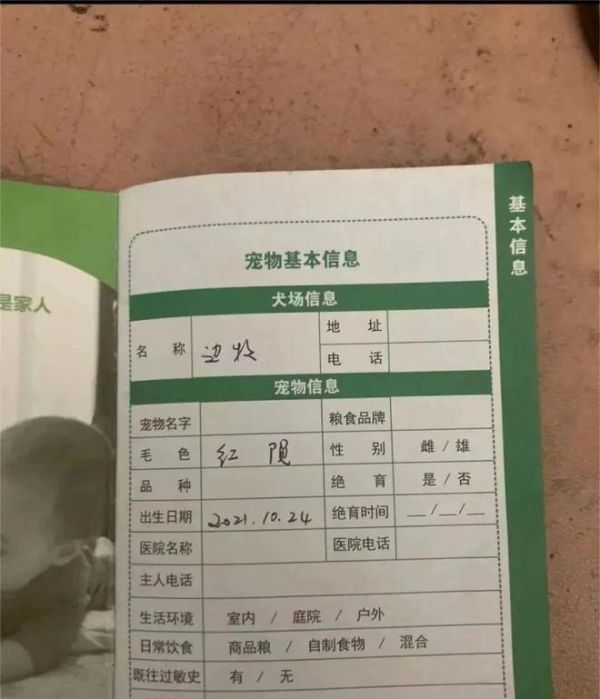 是家人
基本信息
宠物基本信息
犬场信息
名 称 边牧 地 址
电 话
宠物信息
宠物名字 粮食品牌
毛 色 红陨 性 别 雌 / 雄
品 种 绝 育 是 / 否
出生日期 2021.10.24 绝育时间 __/__/__
医院名称 医院电话
主人电话
生活环境 室内 / 庭院 / 户外
日常饮食 商品粮 / 自制食物 / 混合
既往过敏史 有 / 无